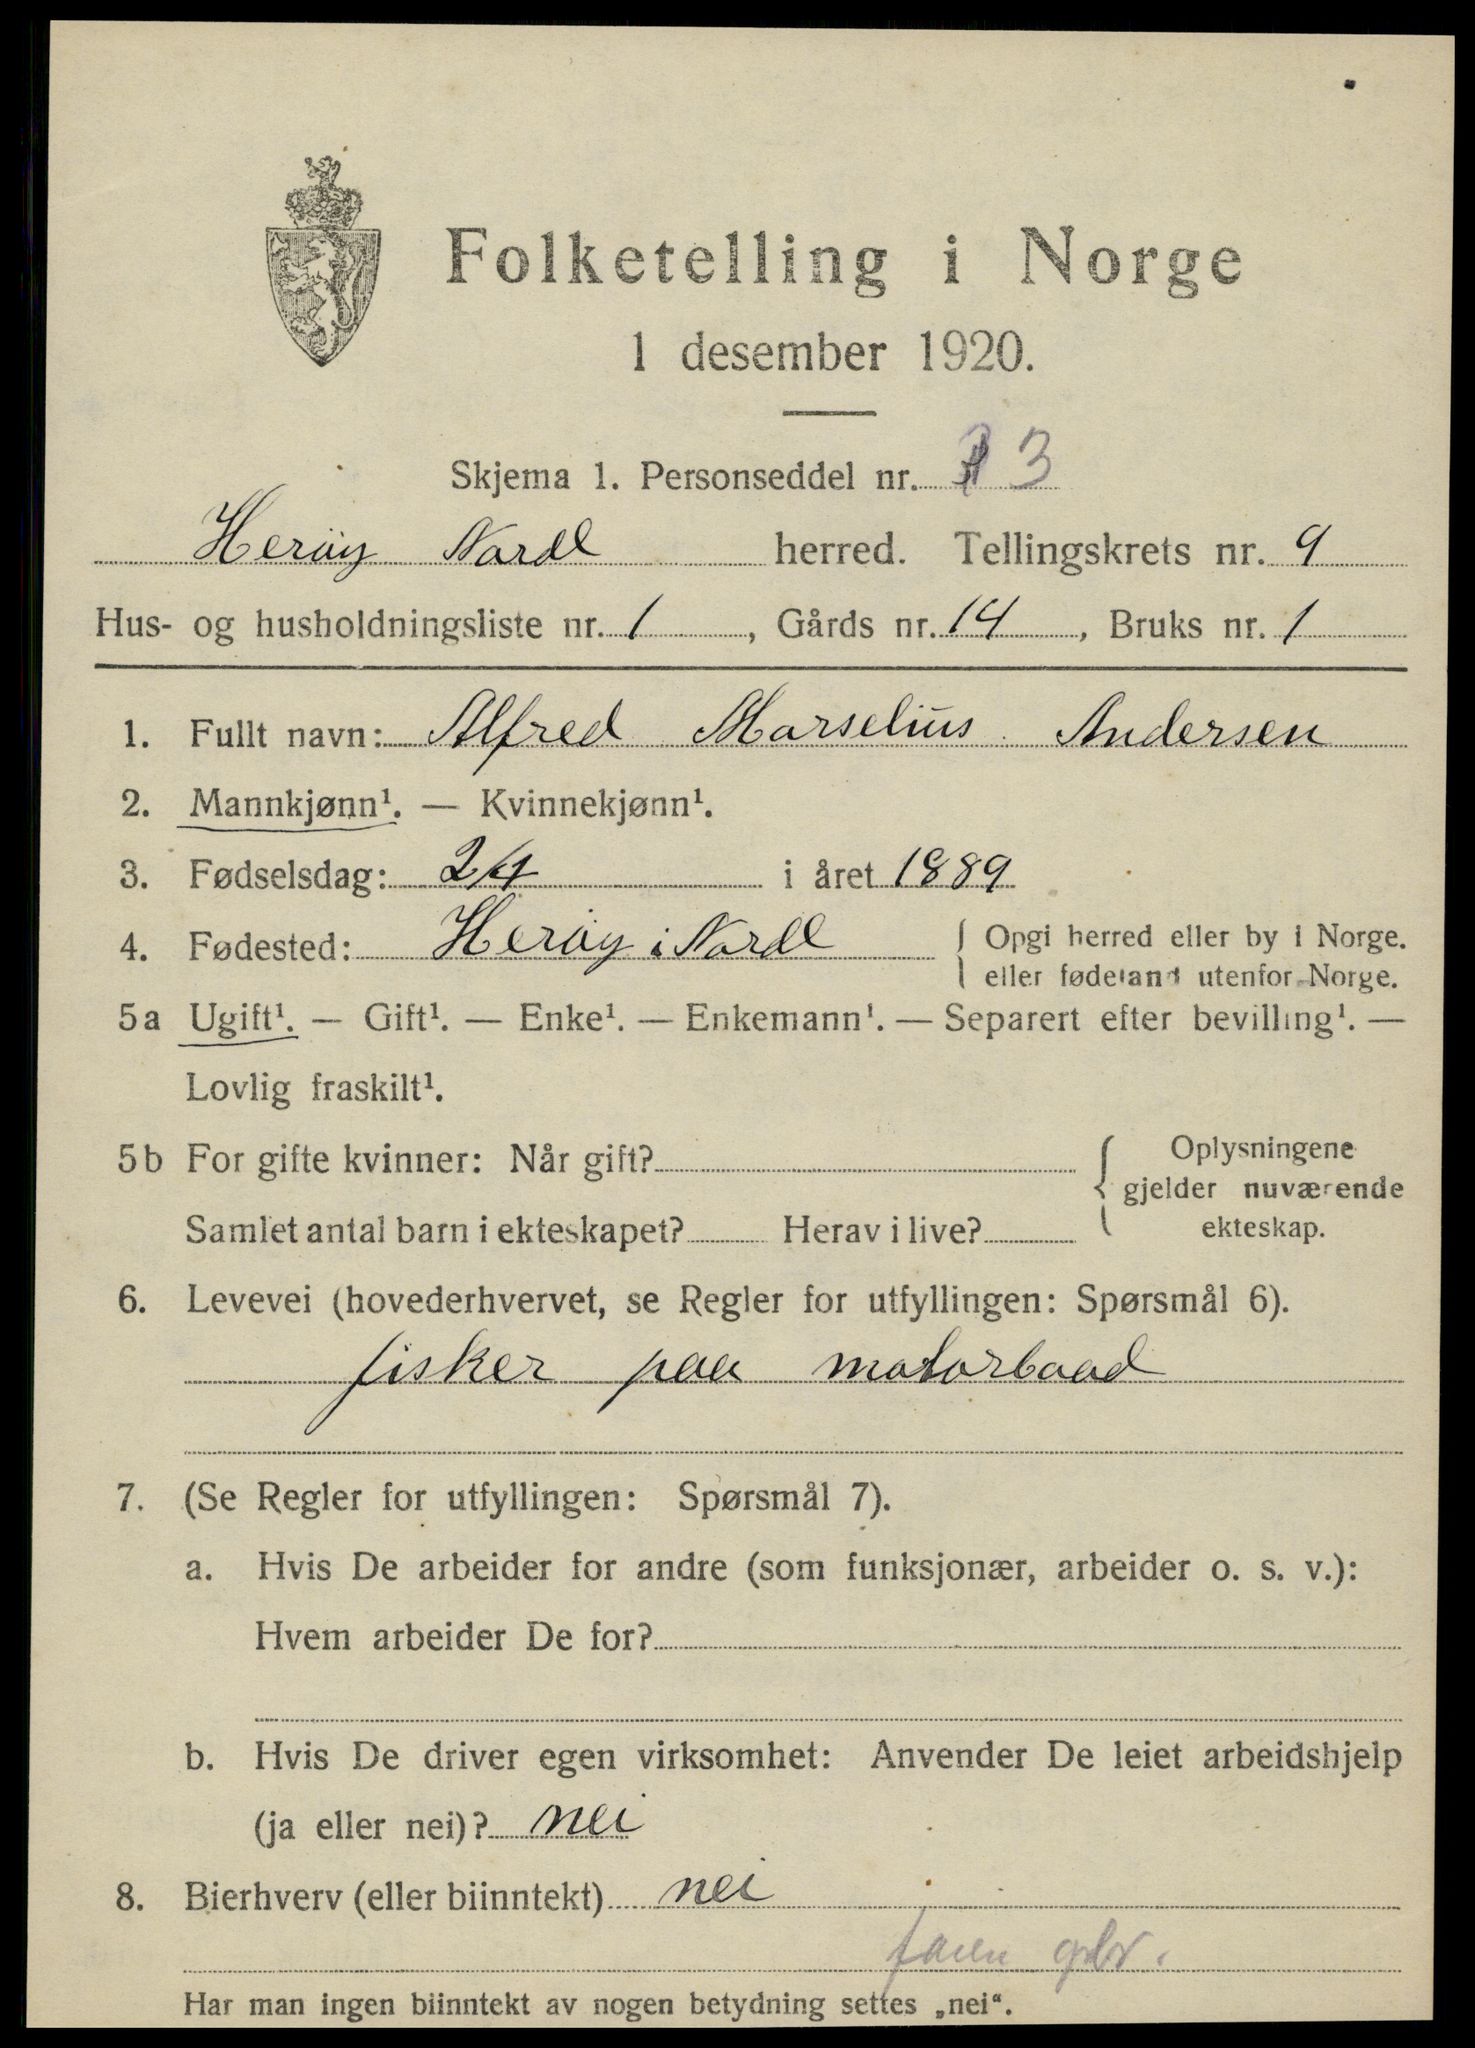 Folketelling i Norge
1 desember 1920.
Skjema 1. Personseddel nr. 3
Herøy Nordl herred. Tellingskrets nr. 9
Hus- og husholdningsliste nr. 1, Gårds nr. 14, Bruks nr. 1
1. Fullt navn: Alfred Marselius Andersen
2. Mannkjønn¹. — Kvinnekjønn¹.
3. Fødselsdag: 2/4 i året 1889
4. Fødested: Herøy i Nordl { Opgi herred eller by i Norge.
eller fødeland utenfor Norge.
5a Ugift¹. — Gift¹. — Enke¹. — Enkemann¹. — Separert efter bevilling¹. —
Lovlig fraskilt¹.
5b For gifte kvinner: Når gift?
Samlet antal barn i ekteskapet? Herav i live?
{ Oplysningene
gjelder nuværende
ekteskap.
6. Levevei (hovederhvervet, se Regler for utfyllingen: Spørsmål 6).
fisker paa motorbaad
7. (Se Regler for utfyllingen: Spørsmål 7).
a. Hvis De arbeider for andre (som funksjonær, arbeider o. s. v.):
Hvem arbeider De for?
b. Hvis De driver egen virksomhet: Anvender De leiet arbeidshjelp
(ja eller nei)? nei
8. Bierhverv (eller biinntekt) nei
faren gbr.
Har man ingen biinntekt av nogen betydning settes „nei“.